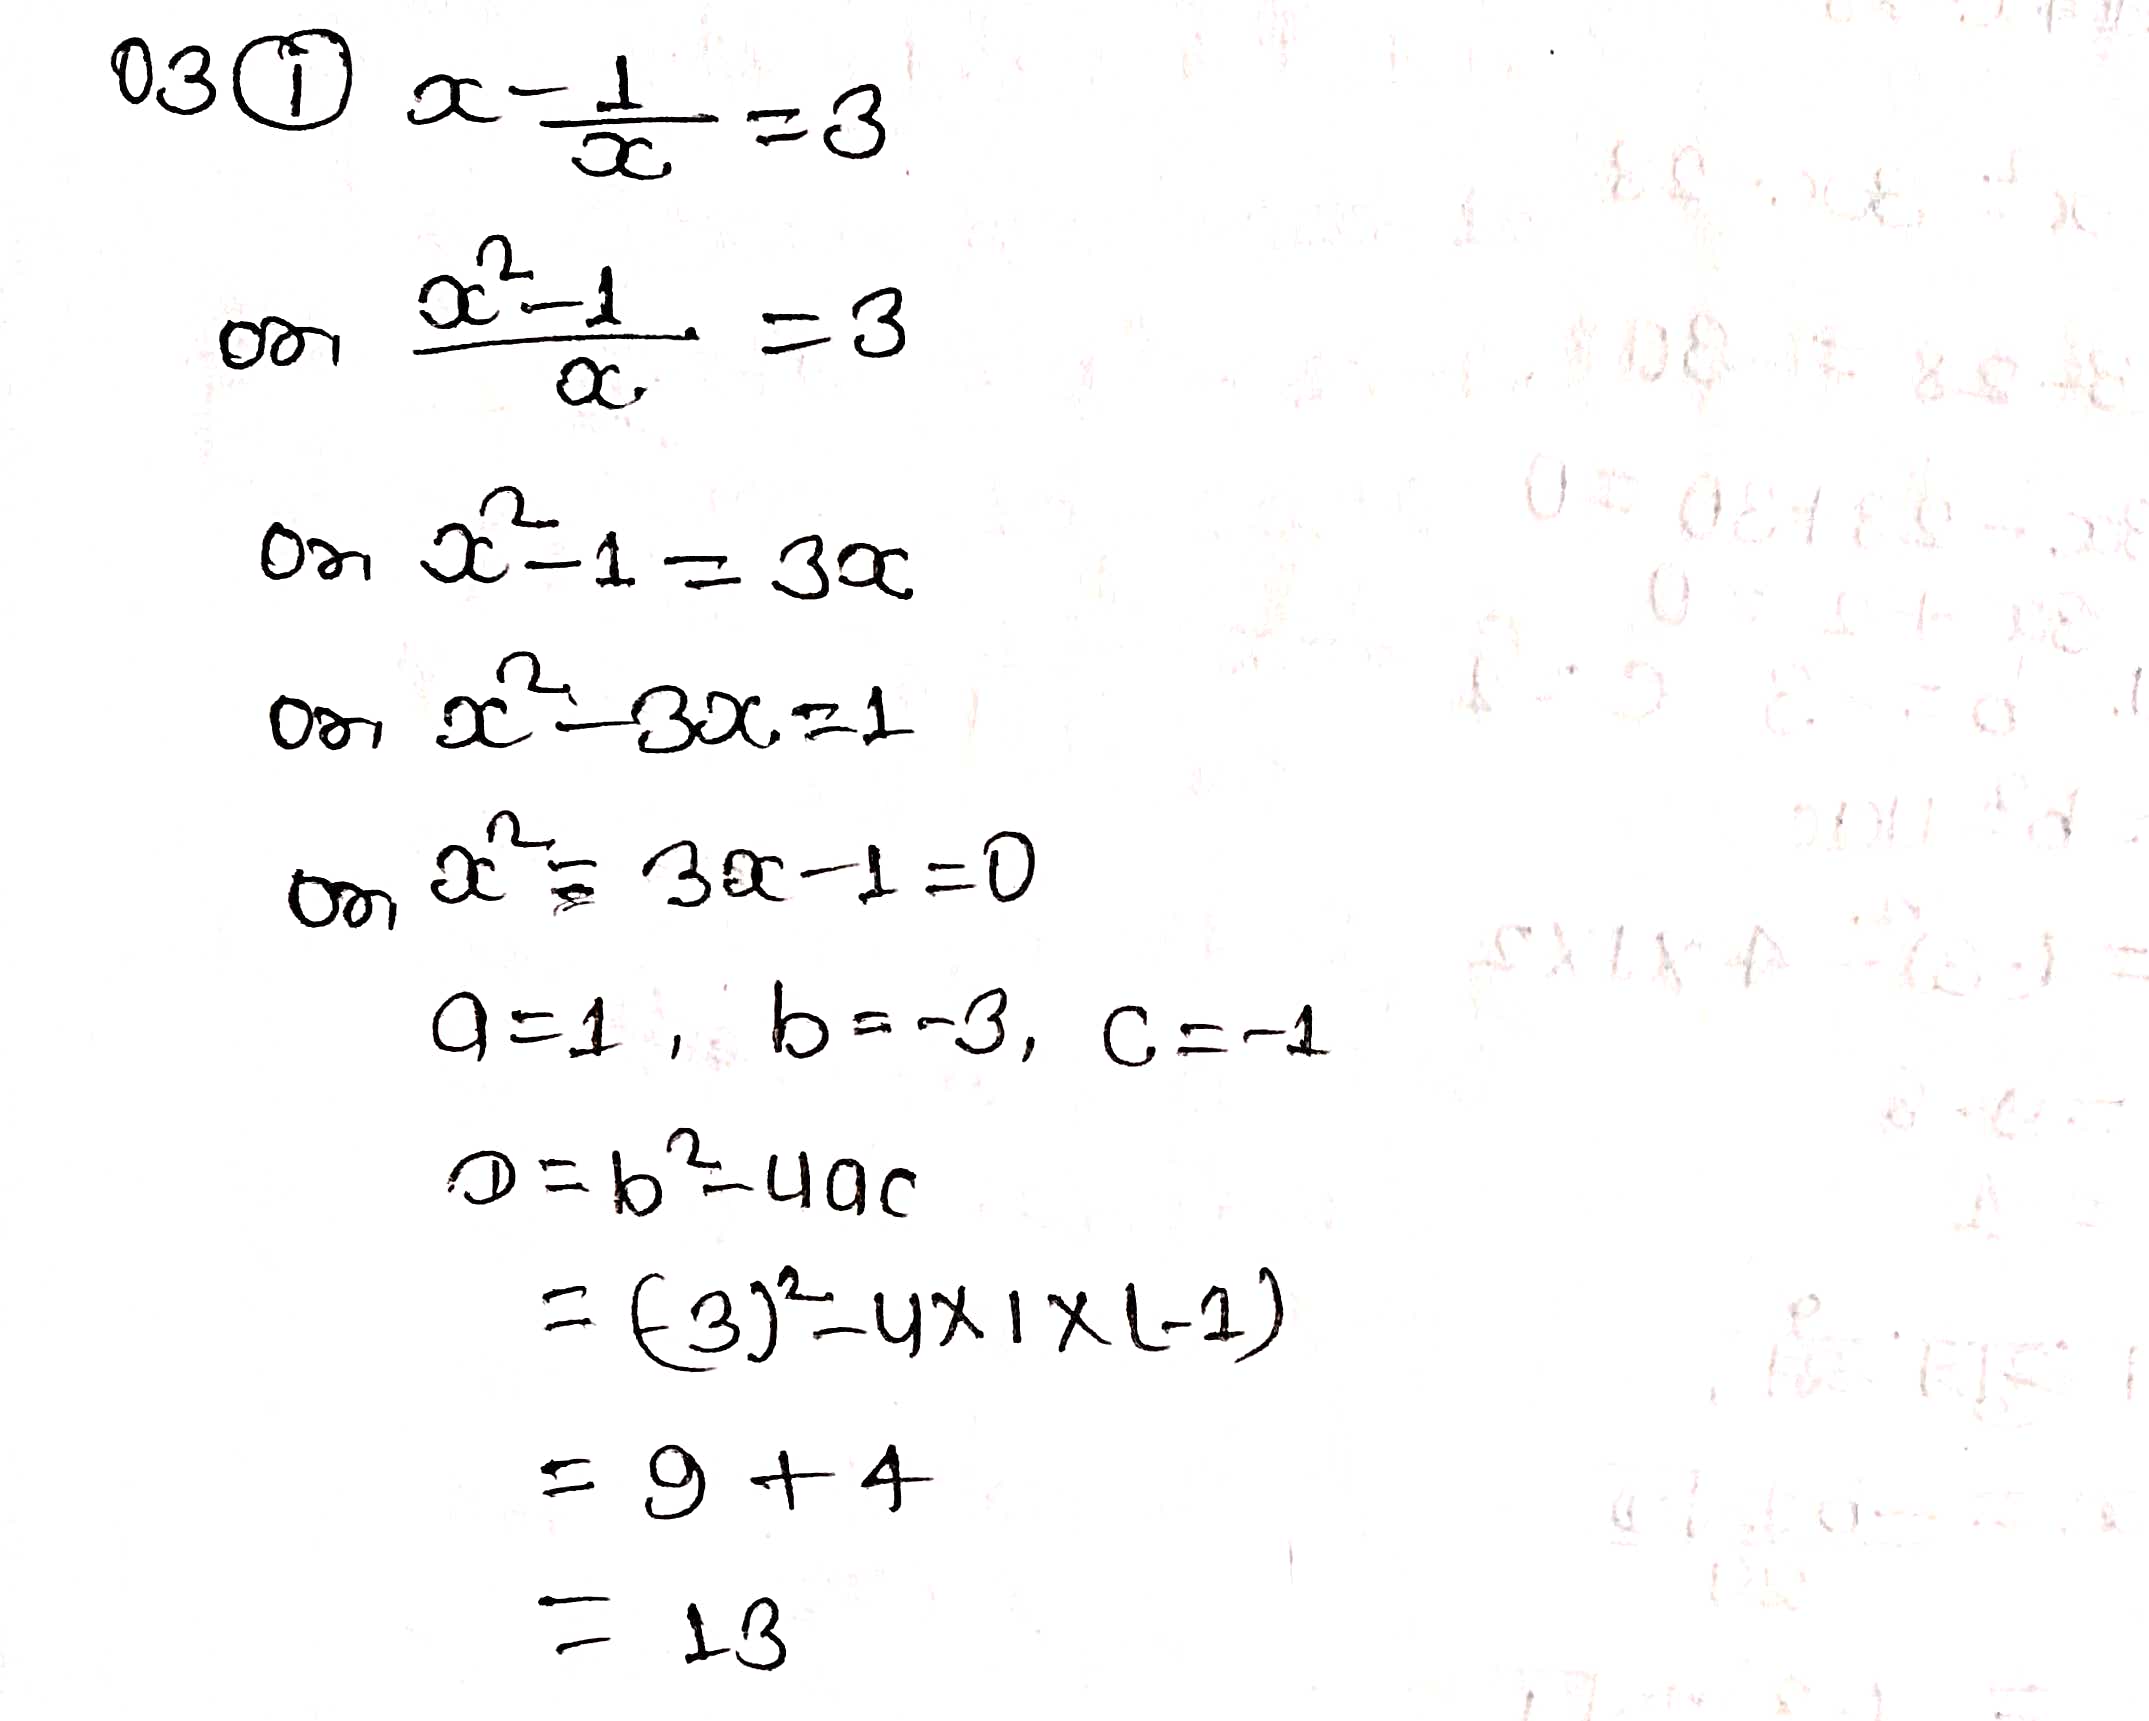 03 (i) x - 1/x = 3
or (x² - 1)/x = 3
or x² - 1 = 3x
or x² - 3x = 1
or x² = 3x - 1 = 0
a = 1, b = -3, c = -1
D = b² - 4ac
= (-3)² - 4 × 1 × (-1)
= 9 + 4
= 13